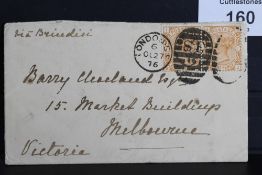 Cuttlestones
160
via Brindisi
LONDON
6
OC 27
76
Barry Cleveland Esqr
15. Market Buildings
Melbourne
Victoria